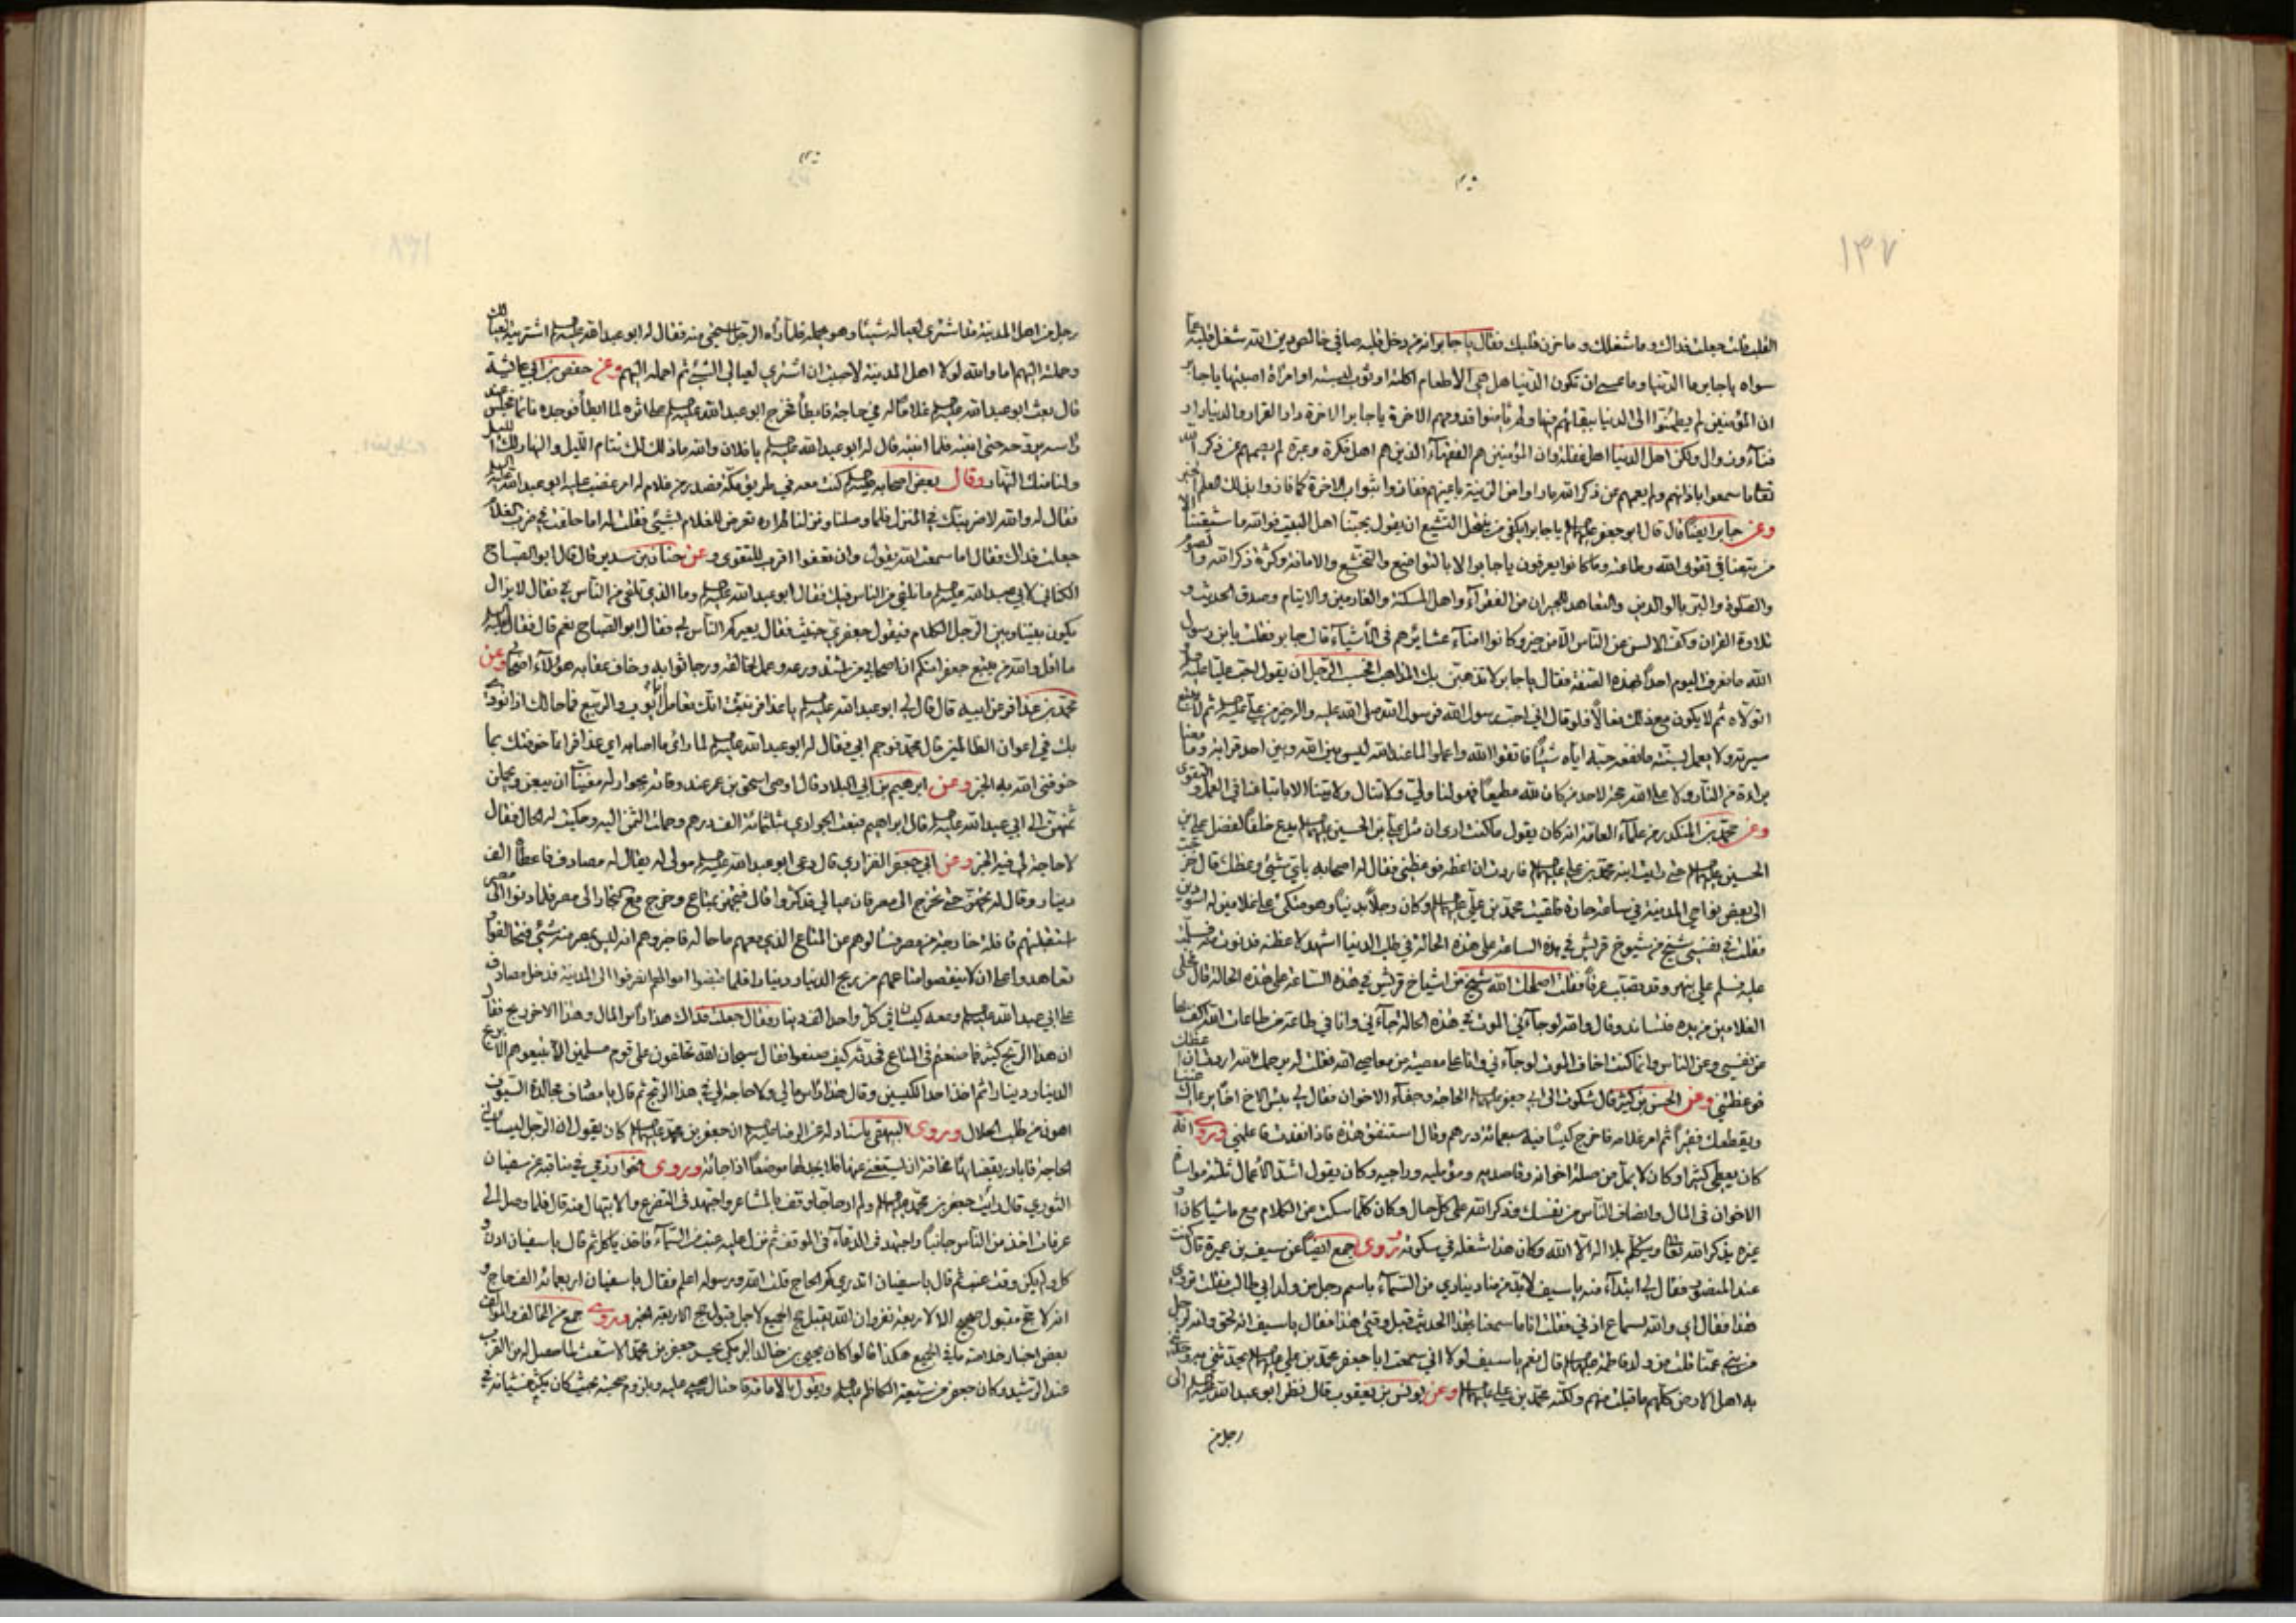 ١٣٧
القلب قلت جعلت فداك وما شغلك وما حزن قلبك فقال يا جابر انه من دخل قلبه صافي خالص دين الله شغل قلبه عما
سواه يا جابر ما الدنيا وما عسى ان تكون الدنيا هل هي الا طعام اكلته او ثوب لبسته او امرأة اصبتها يا جابر
ان المؤمنين لم يطمئنوا الى الدنيا ببقائهم فيها ولم يامنوا قدومهم الاخرة يا جابر الاخرة دار القرار والدنيا دار
فناء وزوال ولكن اهل الدنيا اهل غفلة وان المؤمنين هم الفقهاء الذين هم اهل فكرة وعبرة لم يصمهم عن ذكر الله
تعالى ما سمعوا باذانهم ولم يعمهم عن ذكر الله ما راوا من الزينة باعينهم ففازوا بثواب الاخرة كما فازوا بذلك العلم
وعن جابر ايضا قال قال ابو جعفر يا جابر ايكتفي من ينتحل التشيع ان يقول بحبنا اهل البيت فوالله ما شيعتنا الا
من يتبعنا في تقوى الله وطاعته وما كانوا يعرفون يا جابر الا بالتواضع والتخشع والامانة وكثرة ذكر الله والصوم
والصلوة والبر بالوالدين والتعاهد للجيران من الفقراء واهل المسكنة والغارمين والايتام وصدق الحديث و
تلاوة القران وكف الالسن عن الناس الا من خير وكانوا امناء عشائرهم في الاشياء قال جابر فقلت يابن رسول
الله ما نعرف اليوم احدا بهذه الصفة فقال يا جابر لا تذهبن بك المذاهب افحسب الرجل ان يقول احب عليا عليه السلم
واتولاه ثم لا يكون مع ذلك فعالا فلو قال اني احب رسول الله فرسول الله صلى الله عليه واله خير من علي عليه السلم ثم لا يتبع
سيرته ولا يعمل بسنته ما نفعه حبه اياه شيئا فاتقوا الله واعملوا لما عند الله ليس بين الله وبين احد قرابة وما معنا
براءة من النار ولا على الله عز لاحد من كان لله مطيعا فهو لنا ولي ولا تنال ولايتنا الا باتباعنا في العمل والتقوى
وعن محمد بن المنكدر من علماء العامة انه كان يقول ما كنت ارى ان مثل علي بن الحسين يدع خلفا لفضل علي بن
الحسين حتى رايت ابنه محمد بن علي فاردت ان اعظه فوعظني فقال له اصحابه باي شيئ وعظك قال خرجت
الى بعض نواحي المدينة في ساعة حارة فلقيت محمد بن علي وكان رجلا بدينا وهو متكئ على غلامين له اسودين
فقلت في نفسي شيخ من شيوخ قريش في هذه الساعة على هذه الحالة في طلب الدنيا اشهد لاعظنه فدنوت منه فسلمت
عليه فسلم علي بنهر وقد تصبب عرقا فقلت اصلحك الله شيخ من اشياخ قريش في هذه الساعة على هذه الحالة قال فخلى
الغلامين من يده فتساند وقال والله لو جاءني الموت في هذه الحالة جاءني وانا في طاعة من طاعات الله اكف بها
من نفسي وعن الناس وانما كنت اخاف الموت لو جاءني وانا على معصية من معاصي الله فقلت له يرحمك الله اردت ان اعظك
فوعظتني وعن الحسن بن كثير قال شكوت الى ابي جعفر الحاجة وجفاء الاخوان فقال لي بئس الاخ اخا يرعاك غنيا
ويقطعك فقيرا ثم امر غلامه فاخرج كيسا فيه سبعمائة درهم وقال استنفق هذه فاذا نفدت فاعلمني وروي انه
كان يعطي كثيرا وكان لا يمل من صلة اخوانه وقاصديه ومؤمليه وراجيه وكان يقول اشد الاعمال ثلثة مواساة
الاخوان في المال وانصاف الناس من نفسك وذكر الله على كل حال وكان كلما سكت من الكلام مع ماشيا كان او
غيره يذكر الله تعالى ويتكلم بلا اله الا الله وكان هذا شغله في سكوته وروى جمع ايضا عن سيف بن عميرة قال كنت
عند المنصور فقال لي ابتداء منه يا سيف لابد من مناد ينادي من السماء باسم رجل من ولد ابي طالب فقلت تروي
هذا فقال اي والله لسماع اذني فقلت انا ما سمعنا بهذا الحديث قبل وقتي هذا فقال يا سيف انه لحق والله لرجل
من بني عمنا قلت من ولد فاطمة قال نعم يا سيف لولا اني سمعت ابا جعفر محمد بن علي يحدثني به وحدثني
به اهل الارض كلهم ما قبلت منهم ولكنه محمد بن علي وعن يونس بن يعقوب قال نظر ابو عبد الله عليه السلم الى
رجل من
رجل من اهل المدينة قد اشترى لعياله شيئا وهو يحمله فلما راه الرجل استحيى منه فقال له ابو عبد الله عليه السلم اشتريته لعيالك
وحملته اليهم اما والله لولا اهل المدينة لاحببت ان اشتري لعيالي الشيئ ثم احمله اليهم وعن حفص بن ابي عائشة
قال بعث ابو عبد الله عليه السلم غلاما له في حاجة فابطأ فخرج ابو عبد الله عليه السلم على اثره لما ابطأ فوجده نائما فجلس عند
راسه يروحه حتى انتبه فلما انتبه قال له ابو عبد الله عليه السلم يا فلان والله ما ذلك لك تنام الليل والنهار لك الليل
ولنا منك النهار وقال بعض اصحابه عليه السلم كنت معه في طريق مكة فصدر من غلام له امر غضب عليه ابو عبد الله عليه السلم
فقال له والله لاضربنك في المنزل فلما وصلنا ونزلنا لم اره تعرض للغلام بشيئ فقلت له اما حلفت في ضرب الغلام
جعلت فداك فقال اما سمعت الله يقول وان تعفوا اقرب للتقوى وعن حنان بن سدير قال قال ابو الصباح
الكناني لابي عبد الله عليه السلم ما نلقى من الناس فيك فقال ابو عبد الله عليه السلم وما الذي تلقى من الناس في فقال لا يزال
يكون بيننا وبين الرجل الكلام فيقول جعفري خبيث فقال يعيركم الناس بي فقال ابو الصباح نعم قال فقال عليه السلم
ما اقل والله من يتبع جعفرا منكم ان اصحابي من اشتد ورعه وعمل لخالقه ورجا ثوابه وخاف عقابه هؤلاء اصحابي وعن
محمد بن عذافر عن ابيه قال قال لي ابو عبد الله عليه السلم يا عذافر نبئت انك تعامل ابا ايوب والربيع فما حالك اذا نودي
بك في اعوان الظالمين قال محمد فوجم ابي فقال له ابو عبد الله عليه السلم لما رائ ما اصابه اي عذافر انما خوفتك بما
خوفني الله به الخبر وعن ابرهيم بن ابي البلاد قال اوصى اسحق بن عمر عند وفاته بجوار له مغنيات ان يبعن ويحمل
ثمنهن الى ابي عبد الله عليه السلم قال ابراهيم فبعت الجواري بثلثمائة الف درهم وحملت الثمن اليه وحكيت له الحال فقال
لا حاجة لي فيه الخبر وعن ابي جعفر الفزاري قال دعى ابو عبد الله عليه السلم مولى له يقال له مصادف فاعطاه الف
دينار وقال له تجهز حتى تخرج الى مصر فان عيالي قد كثروا قال فتجهز بمتاع وخرج مع تجار الى مصر فلما دنوا الى مصر
استقبلتهم قافلة خارجة من مصر فسالوهم عن المتاع الذي معهم ما حاله فاخبروهم انه ليس بمصر منه شيئ فتحالفوا و
تعاهدوا على ان لا ينقصوا متاعهم من ربح الدينار دينارا فلما قبضوا اموالهم انصرفوا الى المدينة فدخل مصادف
على ابي عبد الله عليه السلم ومعه كيسان في كل واحد الف دينار فقال جعلت فداك هذا راس المال وهذا الاخر ربح فقال
ان هذا الربح كثير فما صنعتم في المتاع فحدثه كيف صنعوا فقال سبحان الله تحلفون على قوم مسلمين الا تبيعوهم الا بربح
الدينار دينارا ثم اخذ احد الكيسين وقال هذا راس مالي ولا حاجة لي في هذا الربح ثم قال يا مصادف مجالدة السيوف
اهون من طلب الحلال وروى البيهقي باسناد له عن الرضا عليه السلم ان جعفر بن محمد كان يقول ان الرجل ليسالني
الحاجة فابادر بقضائها مخافة ان يستغني عنها فلا يجد لها موضعا اذا جائته وروى الخوارزمي في مناقبه عن سفيان
الثوري قال رايت جعفر بن محمد ولم ار حاجا وقف بالمشاعر واجتهد في التضرع والابتهال منه قال فلما وصل الى
عرفات اخذ من الناس جانبا واجتهد في الدعاء في الموقف ثم نزل عليه عنب من السماء فاخذ ياكل ثم قال يا سفيان ادن و
كل ولم يكن وقت عنب ثم قال يا سفيان اتدري كم الحاج قلت الله ورسوله اعلم فقال يا سفيان اربعمائة الف حاج و
انه لا حج مقبول صحيح الا لاربعة نفر وان الله يقبل حج الجميع لاجل قبول حج الاربعة الخبر وروى جمع من المخالف والمؤالف
بعض اخبار خلاصة ما في الجميع هكذا قالوا كان يحيى بن خالد البرمكي يحسد جعفر بن محمد الاشعث لما حصل له من القرب
عند الرشيد وكان جعفر من شيعة الكاظم عليه السلم ويقول بالامامة فاحتال يحيى عليه ويلزوم صحبته بحيث كان يكثر غشيانه في